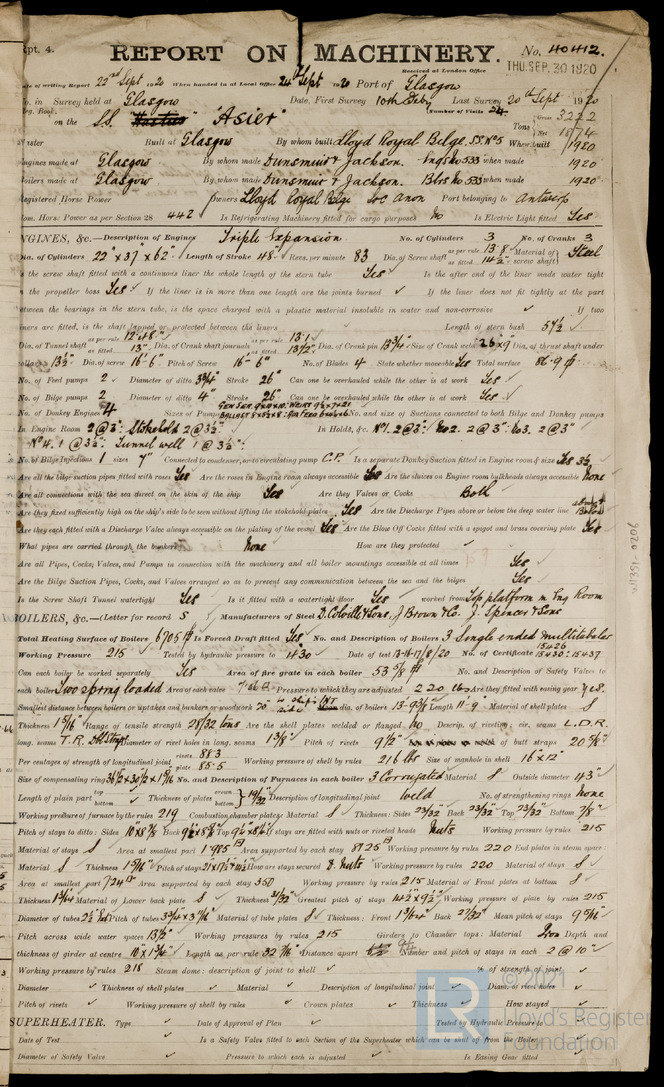 Rpt. 4.
REPORT ON MACHINERY.
No. 40412.
Received at London Office
THU. SEP. 30 1920
Date of writing Report 22nd Sept 1920 When handed in at Local Office 24th Sept 1920 Port of Glasgow
No. in Survey held at Glasgow Date, First Survey 10th Feby Last Survey 20th Sept 1920
Reg. Book. (Number of Visits
on the S.S. "Asier" Tons Gross 3222 Net 1874
Master Built at Glasgow By whom built Lloyd Royal Belge, SS. No 5 When built 1920
Engines made at Glasgow By whom made Dunsmuir & Jackson. Engs No 533 when made 1920
Boilers made at Glasgow By whom made Dunsmuir & Jackson. Blrs No 533 when made 1920
Registered Horse Power Owners Lloyd Royal Belge Soc Anon Port belonging to Antwerp
Nom. Horse Power as per Section 28 442 Is Refrigerating Machinery fitted for cargo purposes No Is Electric Light fitted Yes
ENGINES, &c.—Description of Engines Triple Expansion No. of Cylinders 3 No. of Cranks 3
Dia. of Cylinders 22" x 37" x 62" Length of Stroke 48" Revs. per minute 83 Dia. of Screw shaft as per rule 13.8 as fitted 14½" Material of screw shaft Steel
Is the screw shaft fitted with a continuous liner the whole length of the stern tube Yes Is the after end of the liner made water tight
in the propeller boss Yes If the liner is in more than one length are the joints burned ✓ If the liner does not fit tightly at the part
between the bearings in the stern tube, is the space charged with a plastic material insoluble in water and non-corrosive ✓ If two
liners are fitted, is the shaft lapped or protected between the liners ✓ Length of stern bush 57½
Dia. of Tunnel shaft as per rule 12.48" as fitted 13" Dia. of Crank shaft journals as per rule 13.1 as fitted 13½" Dia. of Crank pin 13¾" Size of Crank webs 26 x 9" Dia. of thrust shaft under
collars 13½" Dia. of screw 16'-6" Pitch of Screw 16'-6" No. of Blades 4 State whether moveable Yes Total surface
No. of Feed pumps 2 Diameter of ditto 3¾" Stroke 26" Can one be overhauled while the other is at work Yes
No. of Bilge pumps 2 Diameter of ditto 4" Stroke 26" Can one be overhauled while the other is at work Yes
No. of Donkey Engines 4 Sizes of Pumps No. and size of Suctions connected to both Bilge and Donkey pumps
In Engine Room 2 @ 3": Stokehold 2 @ 3½" In Holds, &c. No 1. 2 @ 3": No 2. 2 @ 3": No 3. 2 @ 3"
No 4. 1 @ 3½": Tunnel well 1 @ 3½"
No. of Bilge Injections 1 sizes 7" Connected to condenser, or to circulating pump C.P. Is a separate Donkey Suction fitted in Engine room & size Yes 3½
Are all the bilge suction pipes fitted with roses Yes Are the roses in Engine room always accessible Yes Are the sluices on Engine room bulkheads always accessible None
Are all connections with the sea direct on the skin of the ship Yes Are they Valves or Cocks Both
Are they fixed sufficiently high on the ship's side to be seen without lifting the stokehold plates Yes Are the Discharge Pipes above or below the deep water line
Are they each fitted with a Discharge Valve always accessible on the plating of the vessel Yes Are the Blow Off Cocks fitted with a spigot and brass covering plate Yes
What pipes are carried through the bunkers None How are they protected ✓
Are all Pipes, Cocks, Valves, and Pumps in connection with the machinery and all boiler mountings accessible at all times Yes
Are the Bilge Suction Pipes, Cocks, and Valves arranged so as to prevent any communication between the sea and the bilges Yes
Is the Screw Shaft Tunnel watertight Yes Is it fitted with a watertight door Yes worked from Top platform in Eng Room
BOILERS, &c.—(Letter for record S) Manufacturers of Steel D. Colville & Sons, J Brown & Co. J. Spencer & Sons
Total Heating Surface of Boilers 6705 Is Forced Draft fitted Yes No. and Description of Boilers 3 Single ended multitubular
Working Pressure 215 Tested by hydraulic pressure to Date of test 13-16-17/8/20 No. of Certificate 15426 15430: 15437
Can each boiler be worked separately Yes Area of fire grate in each boiler 53 5/8 No. and Description of Safety Valves to
each boiler Two Spring loaded Area of each valve Pressure to which they are adjusted 220 lbs Are they fitted with easing gear Yes.
Smallest distance between boilers or uptakes and bunkers or woodwork dia. of boilers Length 11-9 Material of shell plates S
Thickness 1 5/16" Range of tensile strength 28/32 tons Are the shell plates welded or flanged No Descrip. of riveting: cir. seams L.D.R.
long. seams T.R. Dbl Straps Diameter of rivet holes in long. seams 1 3/8" Pitch of rivets 9½" of butt straps 20 5/8"
Per centages of strength of longitudinal joint rivets 88.3 plate 85.5 Working pressure of shell by rules 216 lbs Size of manhole in shell 16" x 12"
Size of compensating ring No. and Description of Furnaces in each boiler 3 Corrugated Material S Outside diameter 43"
Length of plain part top bottom Thickness of plates crown bottom 19/32 Description of longitudinal joint Weld No. of strengthening rings None
Working pressure of furnace by the rules 219 Combustion chamber plates: Material S Thickness: Sides 23/32" Back 23/32" Top 23/32" Bottom 7/8"
Pitch of stays to ditto: Sides Back Top If stays are fitted with nuts or riveted heads Nuts Working pressure by rules 215
Material of stays S Area at smallest part Area supported by each stay Working pressure by rules 220 End plates in steam space:
Material S Thickness 1 5/16" Pitch of stays How are stays secured D. Nuts Working pressure by rules 220 Material of stays S
Area at smallest part Area supported by each stay 350 Working pressure by rules 215 Material of Front plates at bottom S
Thickness Material of Lower back plate S Thickness Greatest pitch of stays 14½" x 9½" Working pressure of plate by rules 215
Diameter of tubes Pitch of tubes Material of tube plates S Thickness: Front Back 27/32" Mean pitch of stays
Pitch across wide water spaces 13½" Working pressures by rules 215 Girders to Chamber tops: Material Iron Depth and
thickness of girder at centre 10" x 1¾" Length as per rule 32 7/16" Distance apart Number and pitch of stays in each 2 @ 10"
Working pressure by rules 218 Steam dome: description of joint to shell ✓ % of strength of joint ✓
Diameter ✓ Thickness of shell plates ✓ Material ✓ Description of longitudinal joint ✓ Diam. of rivet holes ✓
Pitch of rivets ✓ Working pressure of shell by rules ✓ Crown plates ✓ Thickness ✓ How stayed ✓
SUPERHEATER. Type ✓ Date of Approval of Plan ✓ Tested by Hydraulic Pressure to
Date of Test ✓ Is a Safety Valve fitted to each Section of the Superheater which can be shut off from the Boiler
Diameter of Safety Valve ✓ Pressure to which each is adjusted ✓ Is Easing Gear fitted ✓
© 2021
Lloyd's Register
Foundation